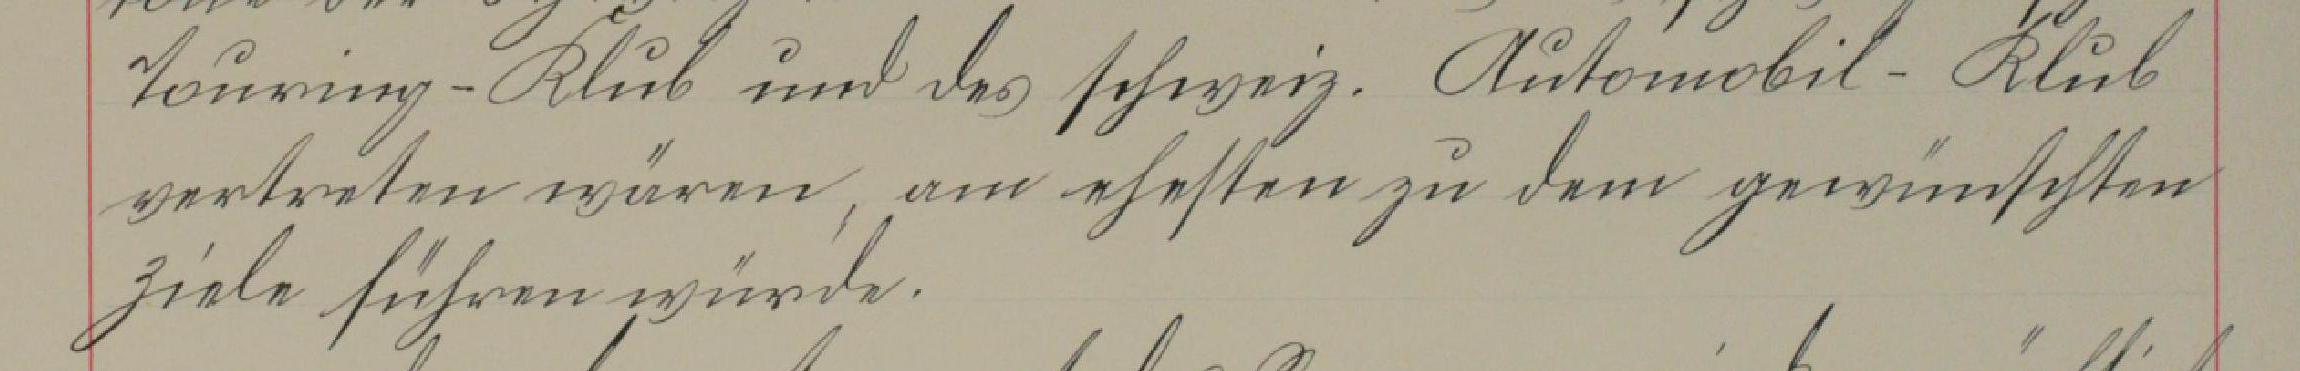 Touring-Klub und des schweiz. Automobil-Klub
vertreten wären, am ehesten zu dem gewünschten
Ziele führen würde.